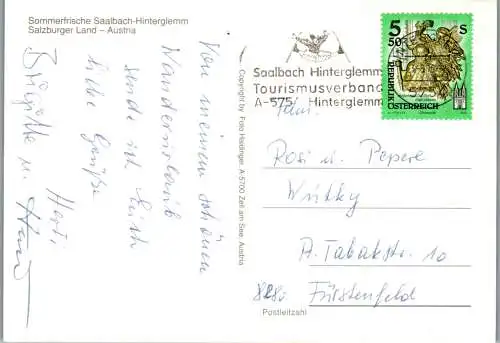 Sommerfrische Saalbach-Hinterglemm
Salzburger Land – Austria
Von meinem schönen
Wanderurlaub
sende ich Euch
liebe Grüße
Herti
Brigitte u.
Copyright by Foto Haidinger, A-5700 Zell am See, Austria
Saalbach Hinterglemm
Tourismusverband
A-575 Hinterglemm
5 50 S
REPUBLIK
ÖSTERREICH
Fam.
Rosi u. Pepere
Wutky
A. Tabakstr. 10
8280 Fürstenfeld
Postleitzahl